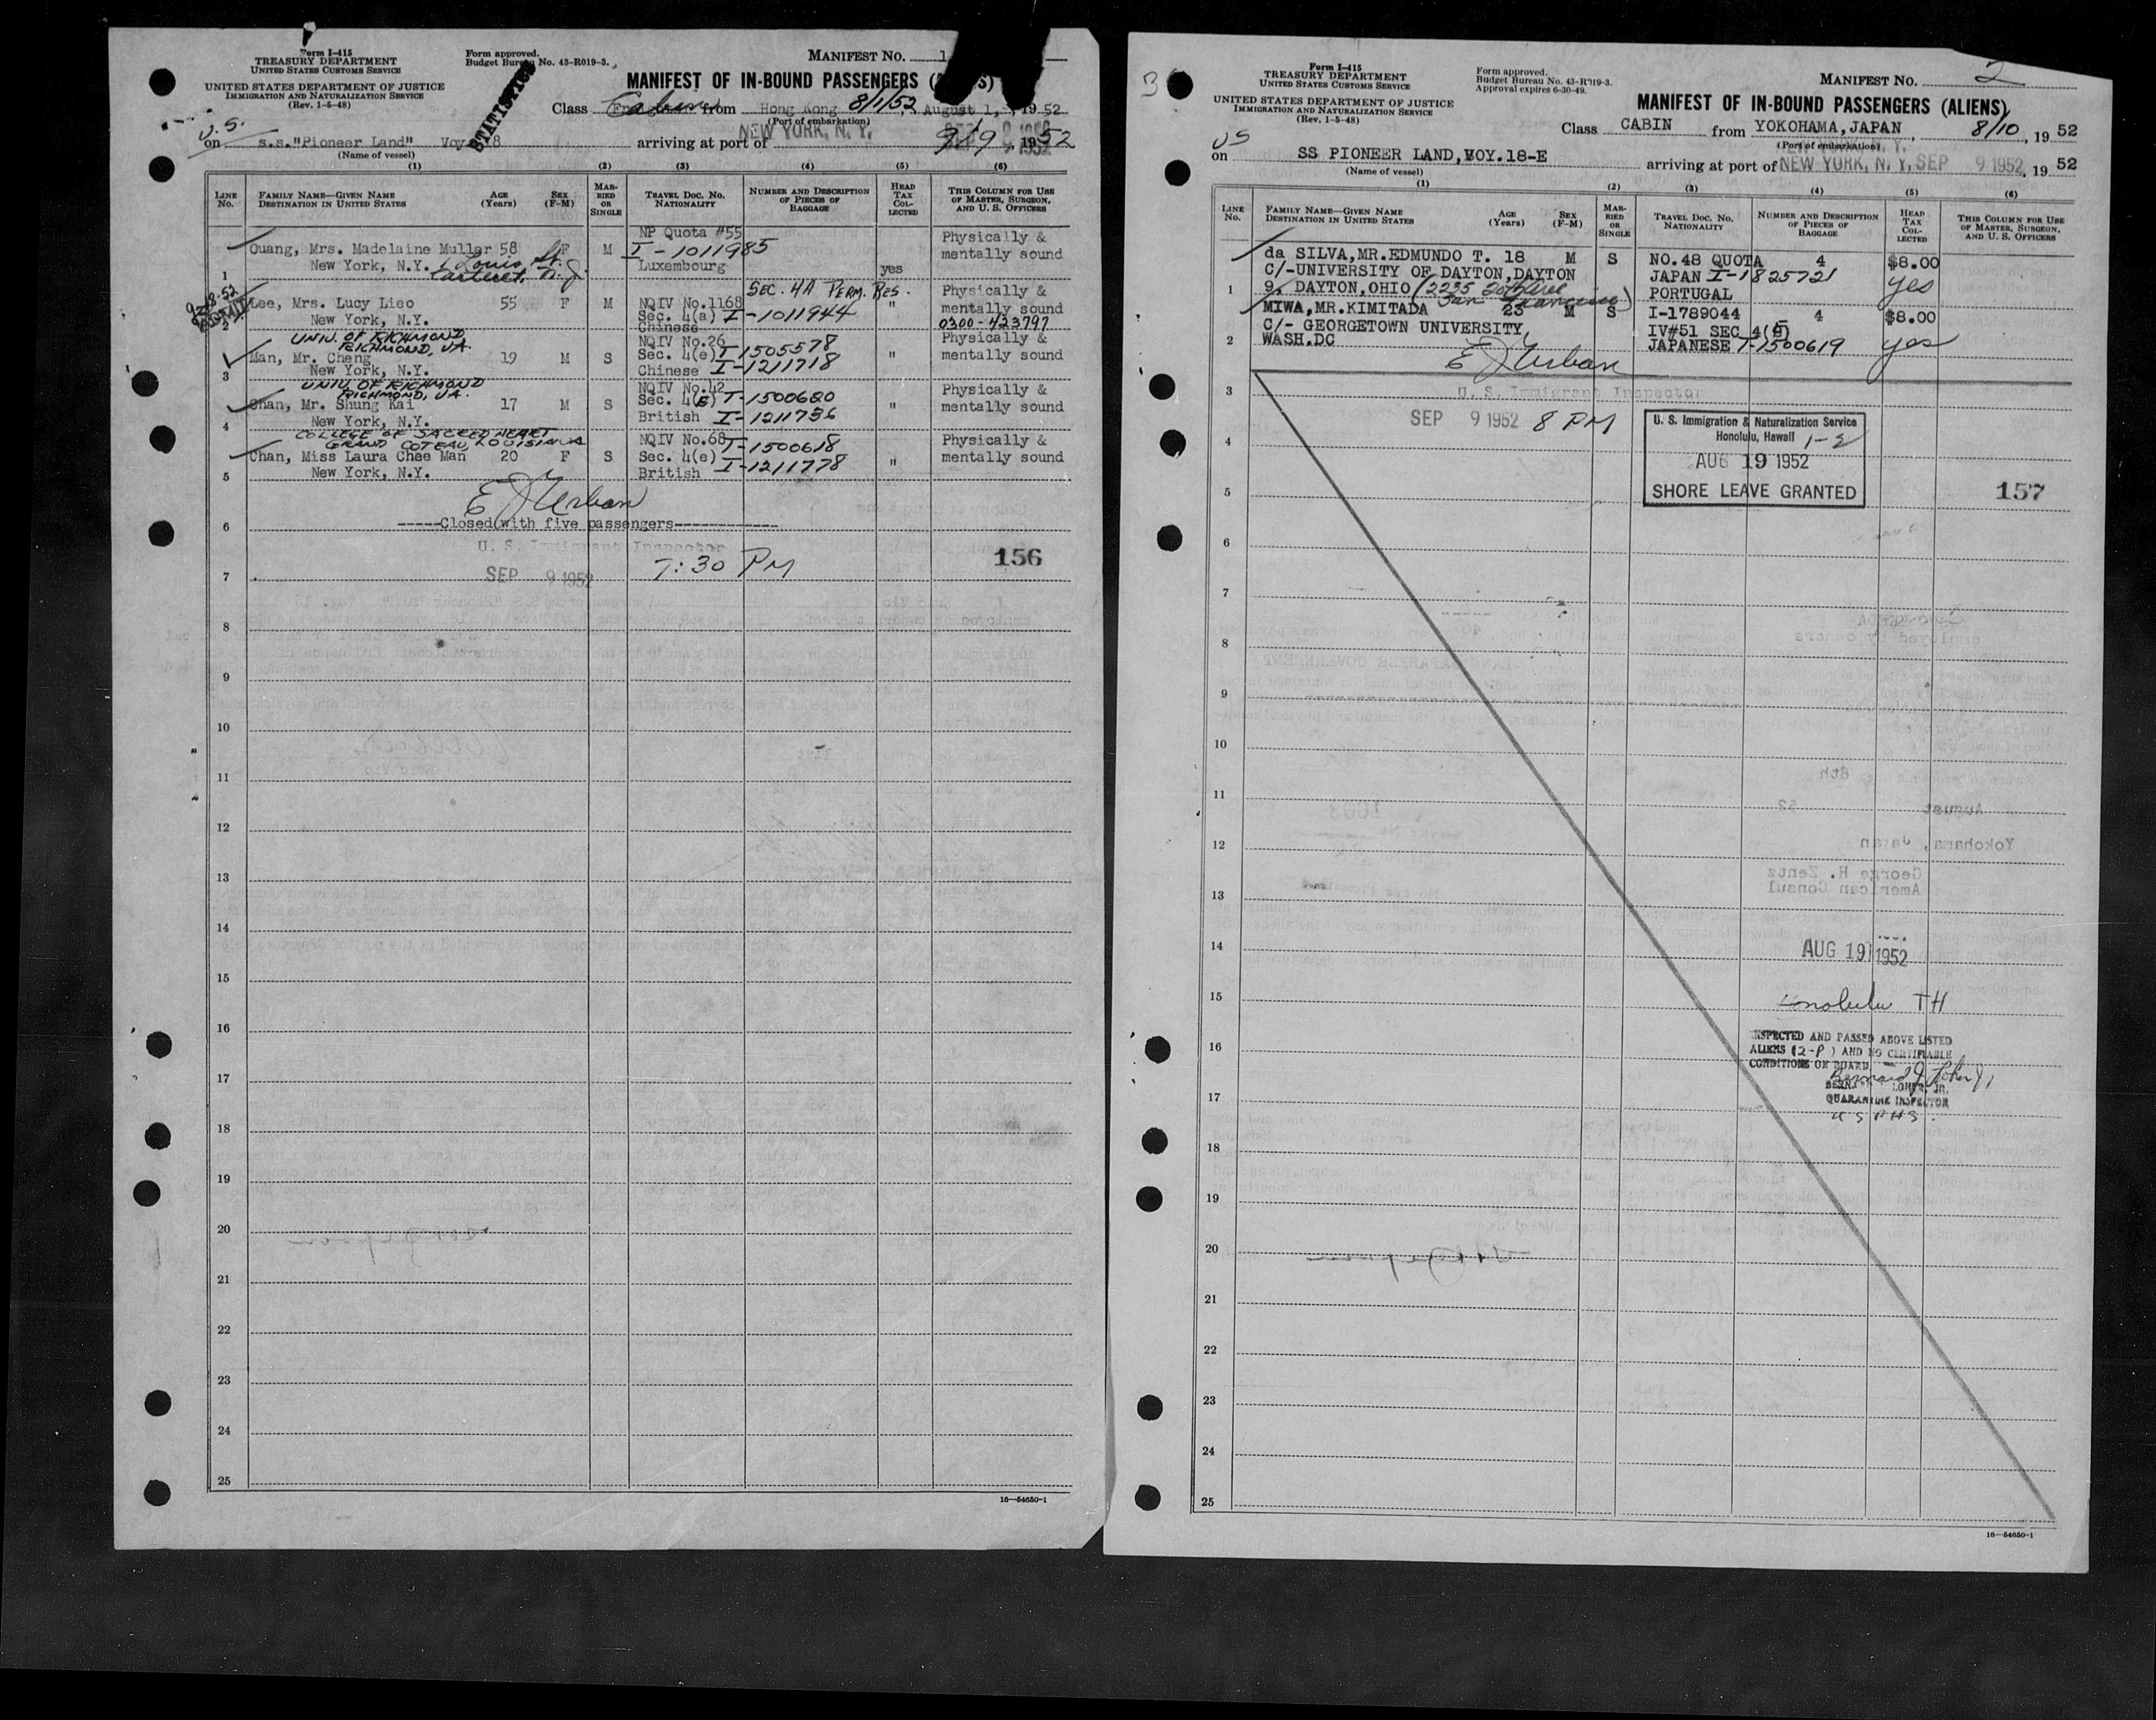 Form I-415
TREASURY DEPARTMENT
UNITED STATES CUSTOMS SERVICE
UNITED STATES DEPARTMENT OF JUSTICE
IMMIGRATION AND NATURALIZATION SERVICE
(Rev. 1-5-48)
Form approved.
Budget Bureau No. 43-R019-3.
MANIFEST NO. 1
MANIFEST OF IN-BOUND PASSENGERS
Class Cabin from Hong Kong 8/1/52, August 1, , 19 52
(Port of embarkation)
U.S.
on s.s."Pioneer Land" Voy. 18
(Name of vessel)
STATISTICS
arriving at port of NEW YORK, N. Y. 9/9, 1952
(1) (2) (3) (4) (5) (6)
LINE No.
FAMILY NAME—GIVEN NAME
DESTINATION IN UNITED STATES
AGE (Years)
SEX (F-M)
MARRIED OR SINGLE
TRAVEL DOC. NO. NATIONALITY
NUMBER AND DESCRIPTION OF PIECES OF BAGGAGE
HEAD TAX COLLECTED
THIS COLUMN FOR USE OF MASTER, SURGEON, AND U. S. OFFICERS
NP Quota #55 Physically &
Ouang, Mrs. Madelaine Muller 58 F M I-1011985 mentally sound
1 New York, N.Y. 1 Louis St. Carteret, N.J. Luxembourg yes
9-8-52
SEC. 4A PERM. RES. Physically &
2 Lee, Mrs. Lucy Lieo 55 F M NQIV No.1168 " mentally sound
New York, N.Y. Sec. 4(a) I-1011944 0300-423797
Chinese
UNIV. OF RICHMOND
RICHMOND, VA.
NQIV No.26 Physically &
3 Man, Mr. Cheng 19 M S Sec. 4(e) T-1505578 " mentally sound
New York, N.Y. Chinese I-1211718
UNIV. OF RICHMOND
RICHMOND, VA.
NQIV No.42 Physically &
4 Chan, Mr. Shung Kai 17 M S Sec. 4(E) T-1500680 " mentally sound
New York, N.Y. British I-1211736
COLLEGE OF SACRED HEART
GRAND COTEAU, LOUISIANA
NQIV No.68 T-1500618 Physically &
5 Chan, Miss Laura Chee Man 20 F S Sec. 4(e) " mentally sound
New York, N.Y. British I-1211778
E J Urban
6 -----Closed with five passengers------------
U. S. Immigrant Inspector
156
7 SEP 9 1952 7:30 PM
8
9
10
11
12
13
14
15
16
17
18
19
20
21
22
23
24
25
16—54650-1
3
Form I-415
TREASURY DEPARTMENT
UNITED STATES CUSTOMS SERVICE
UNITED STATES DEPARTMENT OF JUSTICE
IMMIGRATION AND NATURALIZATION SERVICE
(Rev. 1-5-48)
Form approved.
Budget Bureau No. 43-R019-3.
Approval expires 6-30-49.
MANIFEST NO. 2
MANIFEST OF IN-BOUND PASSENGERS (ALIENS)
Class CABIN from YOKOHAMA, JAPAN , 8/10, 19 52
(Port of embarkation)
US
on SS PIONEER LAND, VOY.18-E
(Name of vessel)
arriving at port of NEW YORK, N. Y, SEP 9 1952, 19 52
(1) (2) (3) (4) (5) (6)
LINE No.
FAMILY NAME—GIVEN NAME
DESTINATION IN UNITED STATES
AGE (Years)
SEX (F-M)
MARRIED OR SINGLE
TRAVEL DOC. NO. NATIONALITY
NUMBER AND DESCRIPTION OF PIECES OF BAGGAGE
HEAD TAX COLLECTED
THIS COLUMN FOR USE OF MASTER, SURGEON, AND U. S. OFFICERS
da SILVA,MR.EDMUNDO T. 18 M S NO.48 QUOTA 4 $8.00
C/-UNIVERSITY OF DAYTON,DAYTON JAPAN I-1825721 yes
1 9, DAYTON,OHIO (2235 20th Ave San Francisco) PORTUGAL
MIWA,MR.KIMITADA 23 M S I-1789044 4 $8.00
C/- GEORGETOWN UNIVERSITY, IV#51 SEC 4(e)
2 WASH.DC JAPANESE T-1500619 yes
E J Urban
3 U. S. Immigrant Inspector
SEP 9 1952 8 PM
U. S. Immigration & Naturalization Service
Honolulu, Hawaii 1-2
AUG 19 1952
SHORE LEAVE GRANTED
157
4
5
6
7
8
9
10
11
12
13
14
AUG 19 1952
15
Honolulu TH
16
INSPECTED AND PASSED ABOVE LISTED
ALIENS (2-P) AND NO CERTIFIABLE
CONDITIONS ON BOARD.
Bernard J Loher Jr,
LOHER, JR.
17
QUARANTINE INSPECTOR
USPHS.
18
19
20
21
22
23
24
25
16—54650-1